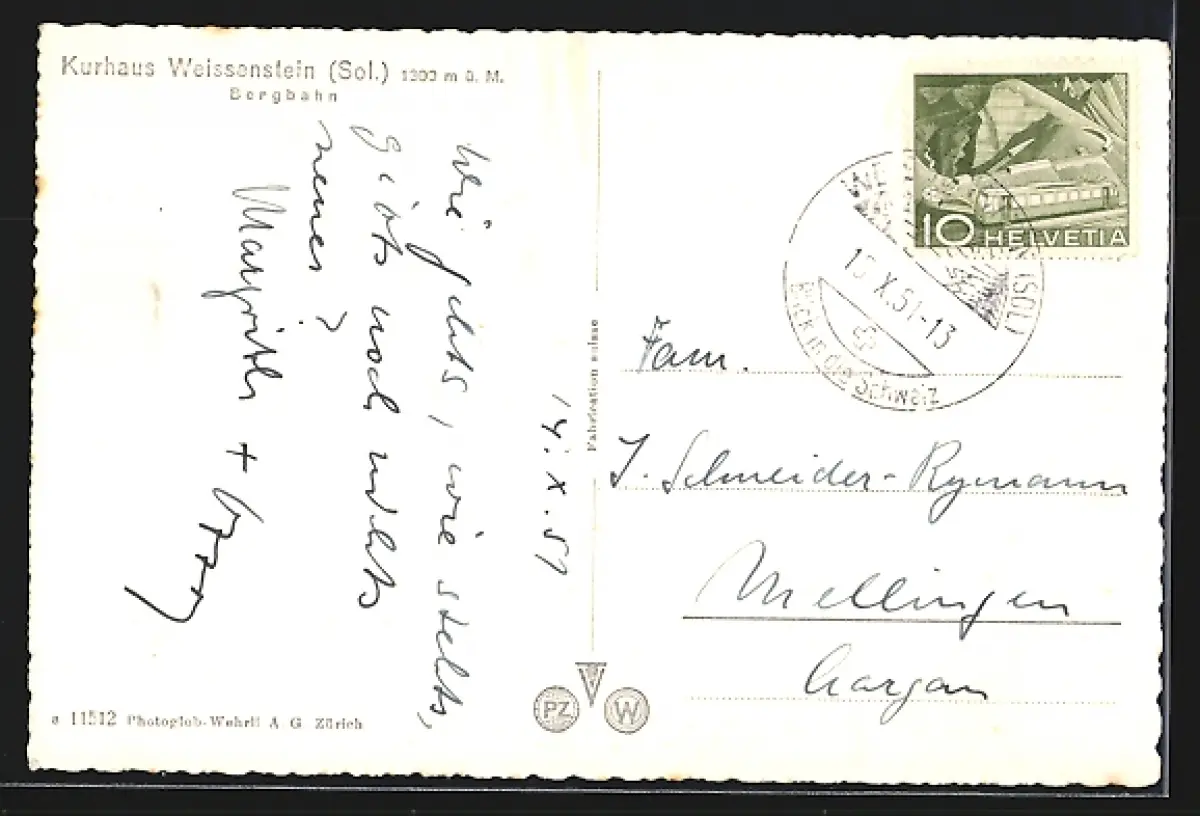 Kurhaus Weissenstein (Sol.) 1300 m ü. M.
Bergbahn
14. X. 51
Wie gehts, wie stehts,
gibts noch nichts
neues?
Margrith +
Fabrication suisse
10 HELVETIA
WEISSENSTEIN (SOL)
15.X.51-13
Blick in die Schweiz
Fam.
J. Schneider-Rymann
Mellingen
Aargau
a 11512 Photoglob-Wehrli A G Zürich
PZ
W